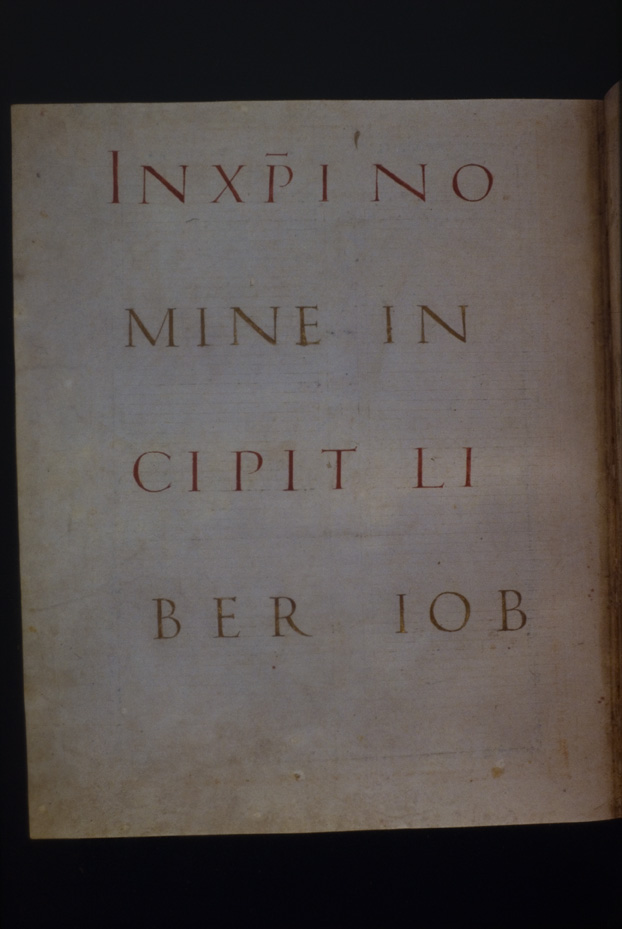 IN XP̄I NO
MINE IN
CIPIT LI
BER IOB